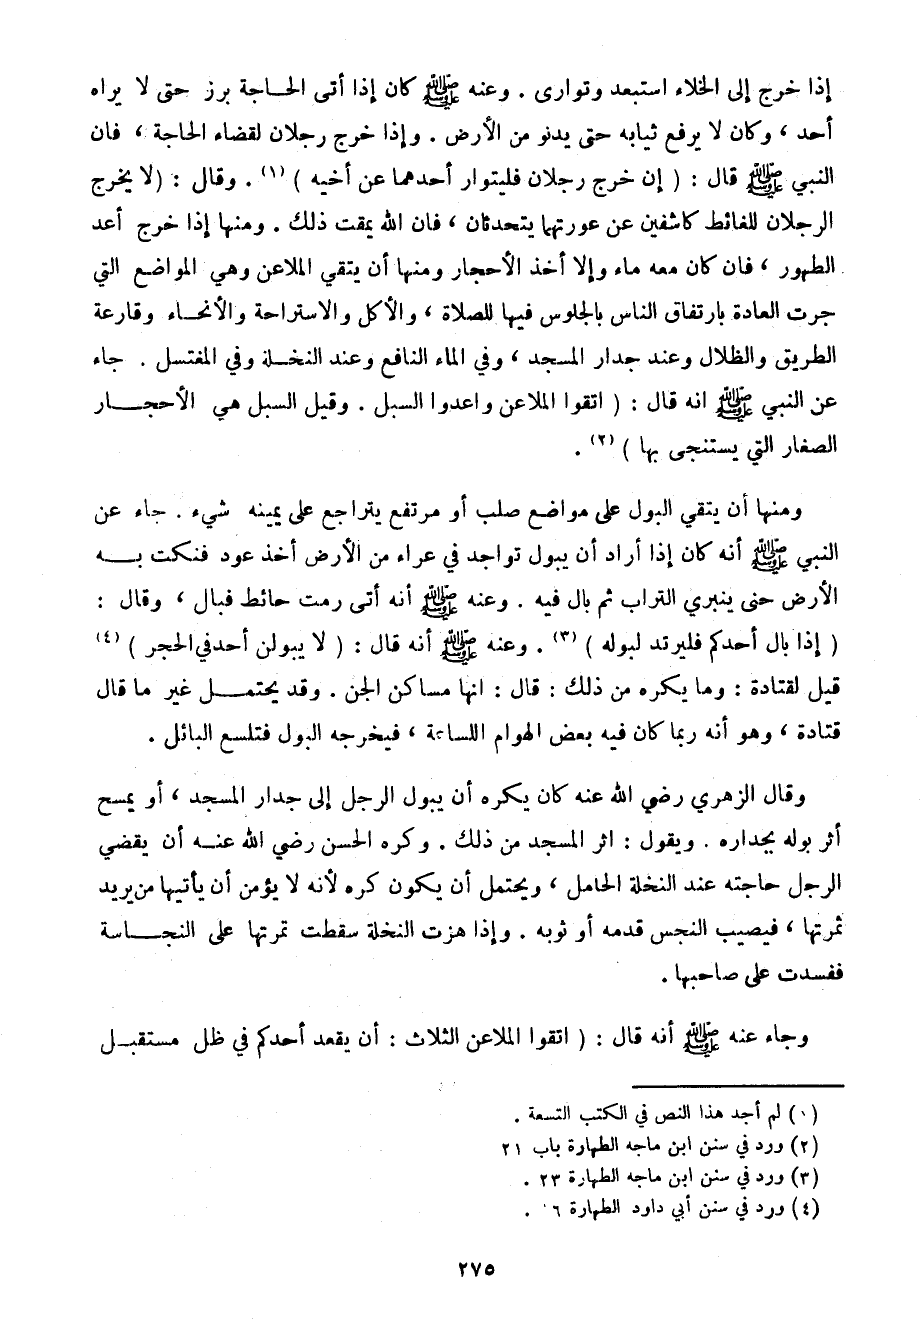 إذا خرج إلى الخلاء استبعد وتوارى . وعنه ﷺ كان إذا أتى الحاجة برز حتى لا يراه
أحد ، وكان لا يرفع ثيابه حتى يدنو من الأرض . وإذا خرج رجلان لقضاء الحاجة ، فان
النبي ﷺ قال : ( إن خرج رجلان فليتوار أحدهما عن أخيه ) (١) . وقال : (لا يخرج
الرجلان للغائط كاشفين عن عورتهما يتحدثان ، فان الله يمقت ذلك . ومنها إذا خرج أعد
الطهور ، فان كان معه ماء وإلا أخذ الأحجار ومنها أن يتقي الملاعن وهي المواضع التي
جرت العادة بارتفاق الناس بالجلوس فيها للصلاة ، والأكل والاستراحة والأنحاء وقارعة
الطريق والظلال وعند جدار المسجد ، وفي الماء النافع وعند النخلة وفي المغتسل . جاء
عن النبي ﷺ انه قال : ( اتقوا الملاعن واعدوا السبل . وقيل السبل هي الأحجار
الصغار التي يستنجى بها ) (٢) .
ومنها أن يتقي البول على مواضع صلب أو مرتفع يتراجع على يمينه شيء . جاء عن
النبي ﷺ أنه كان إذا أراد أن يبول تواجد في عراء من الأرض أخذ عود فنكت به
الأرض حتى ينبري التراب ثم بال فيه . وعنه ﷺ أنه أتى رمت حائط فبال ، وقال :
( إذا بال أحدكم فليرتد لبوله ) (٣) . وعنه ﷺ أنه قال : ( لا يبولن أحد في الحجر ) (٤)
قيل لقتادة : وما يكره من ذلك : قال : انها مساكن الجن . وقد يحتمل غير ما قال
قتادة ، وهو أنه ربما كان فيه بعض الهوام اللساعة ، فيخرجه البول فتلسع البائل .
وقال الزهري رضي الله عنه كان يكره أن يبول الرجل إلى جدار المسجد ، أو يمسح
أثر بوله بجداره . ويقول : اثر المسجد من ذلك . وكره الحسن رضي الله عنه أن يقضي
الرجل حاجته عند النخلة الحامل ، ويحتمل أن يكون كره لأنه لا يؤمن أن يأتيها من يريد
ثمرتها ، فيصيب النجس قدمه أو ثوبه . وإذا هزت النخلة سقطت ثمرتها على النجاسة
ففسدت على صاحبها .
وجاء عنه ﷺ أنه قال : ( اتقوا الملاعن الثلاث : أن يقعد أحدكم في ظل مستقبل
(١) لم أجد هذا النص في الكتب التسعة .
(٢) ورد في سنن ابن ماجه الطهارة باب ٢١
(٣) ورد في سنن ابن ماجه الطهارة ٢٣ .
(٤) ورد في سنن أبي داود الطهارة .
٢٧٥